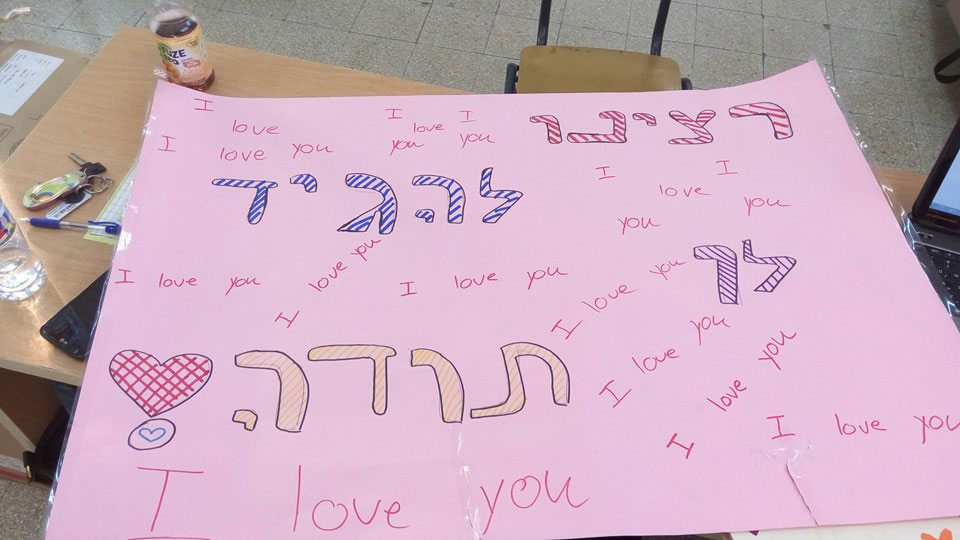 FUZE
רצינו
I love
I love you
I love you
I you
להגיד
I love you
I you
לך
I love you
I love you
I love you
I love you
I love you
תודה
I love you
I love you
I love you